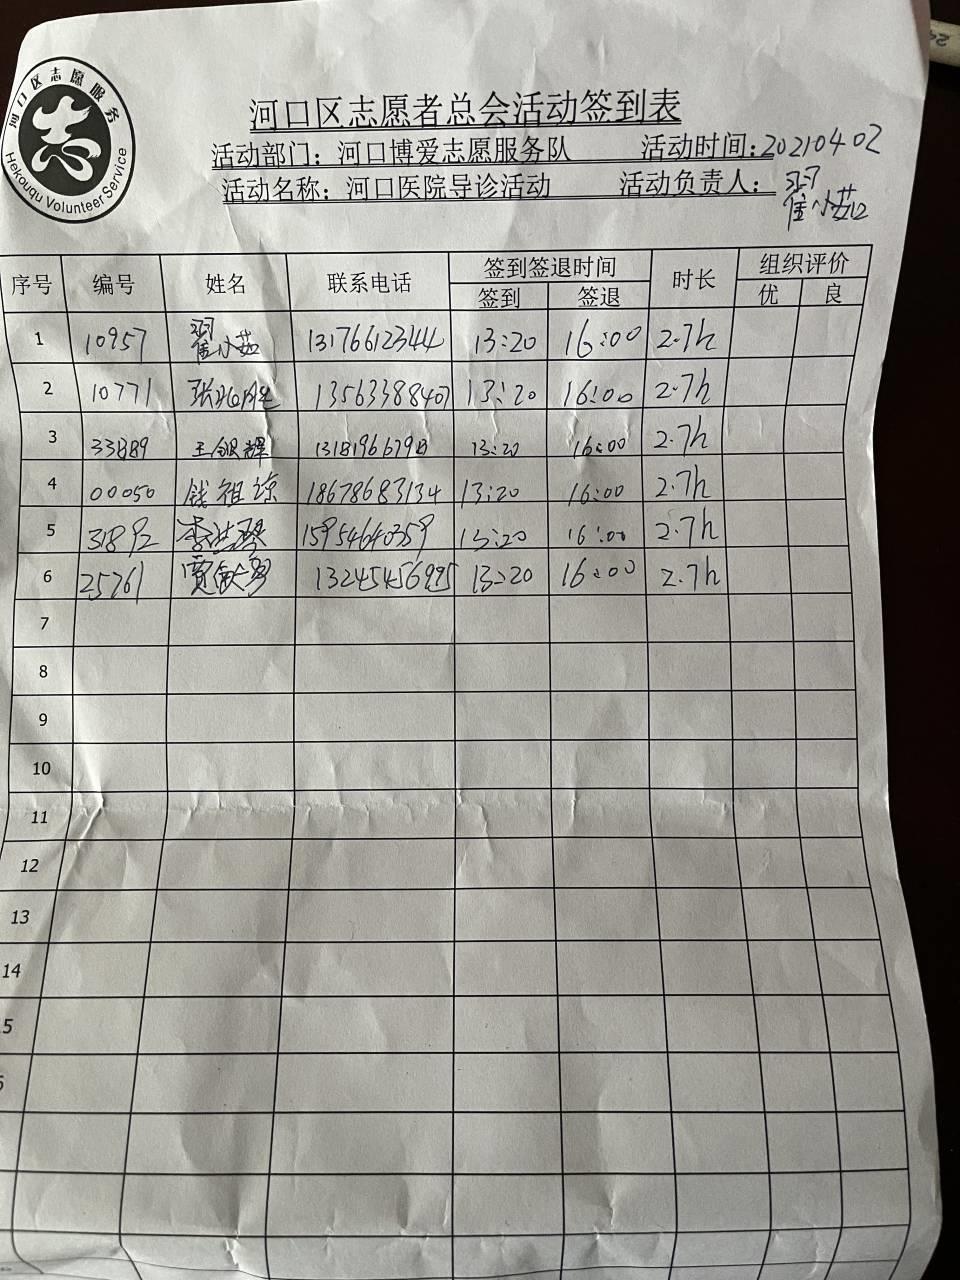 河口区志愿服务
Hekouqu Volunteer Service
河口区志愿者总会活动签到表
活动部门：河口博爱志愿服务队 活动时间：20210402
活动名称：河口医院导诊活动 活动负责人：翟小茹
序号 编号 姓名 联系电话 签到签退时间 时长 组织评价
签到 签退 优 良
1 10957 翟小茹 13176612344 13:20 16:00 2.7h
2 10771 13563388407 13:20 16:00 2.7h
3 33889 王银辉 13:20 16:00 2.7h
4 00050 钱祖琼 18678683134 13:20 16:00 2.7h
5 31892 15954640359 13:20 16:00 2.7h
6 25761 13245456995 13:20 16:00 2.7h
7
8
9
10
11
12
13
14